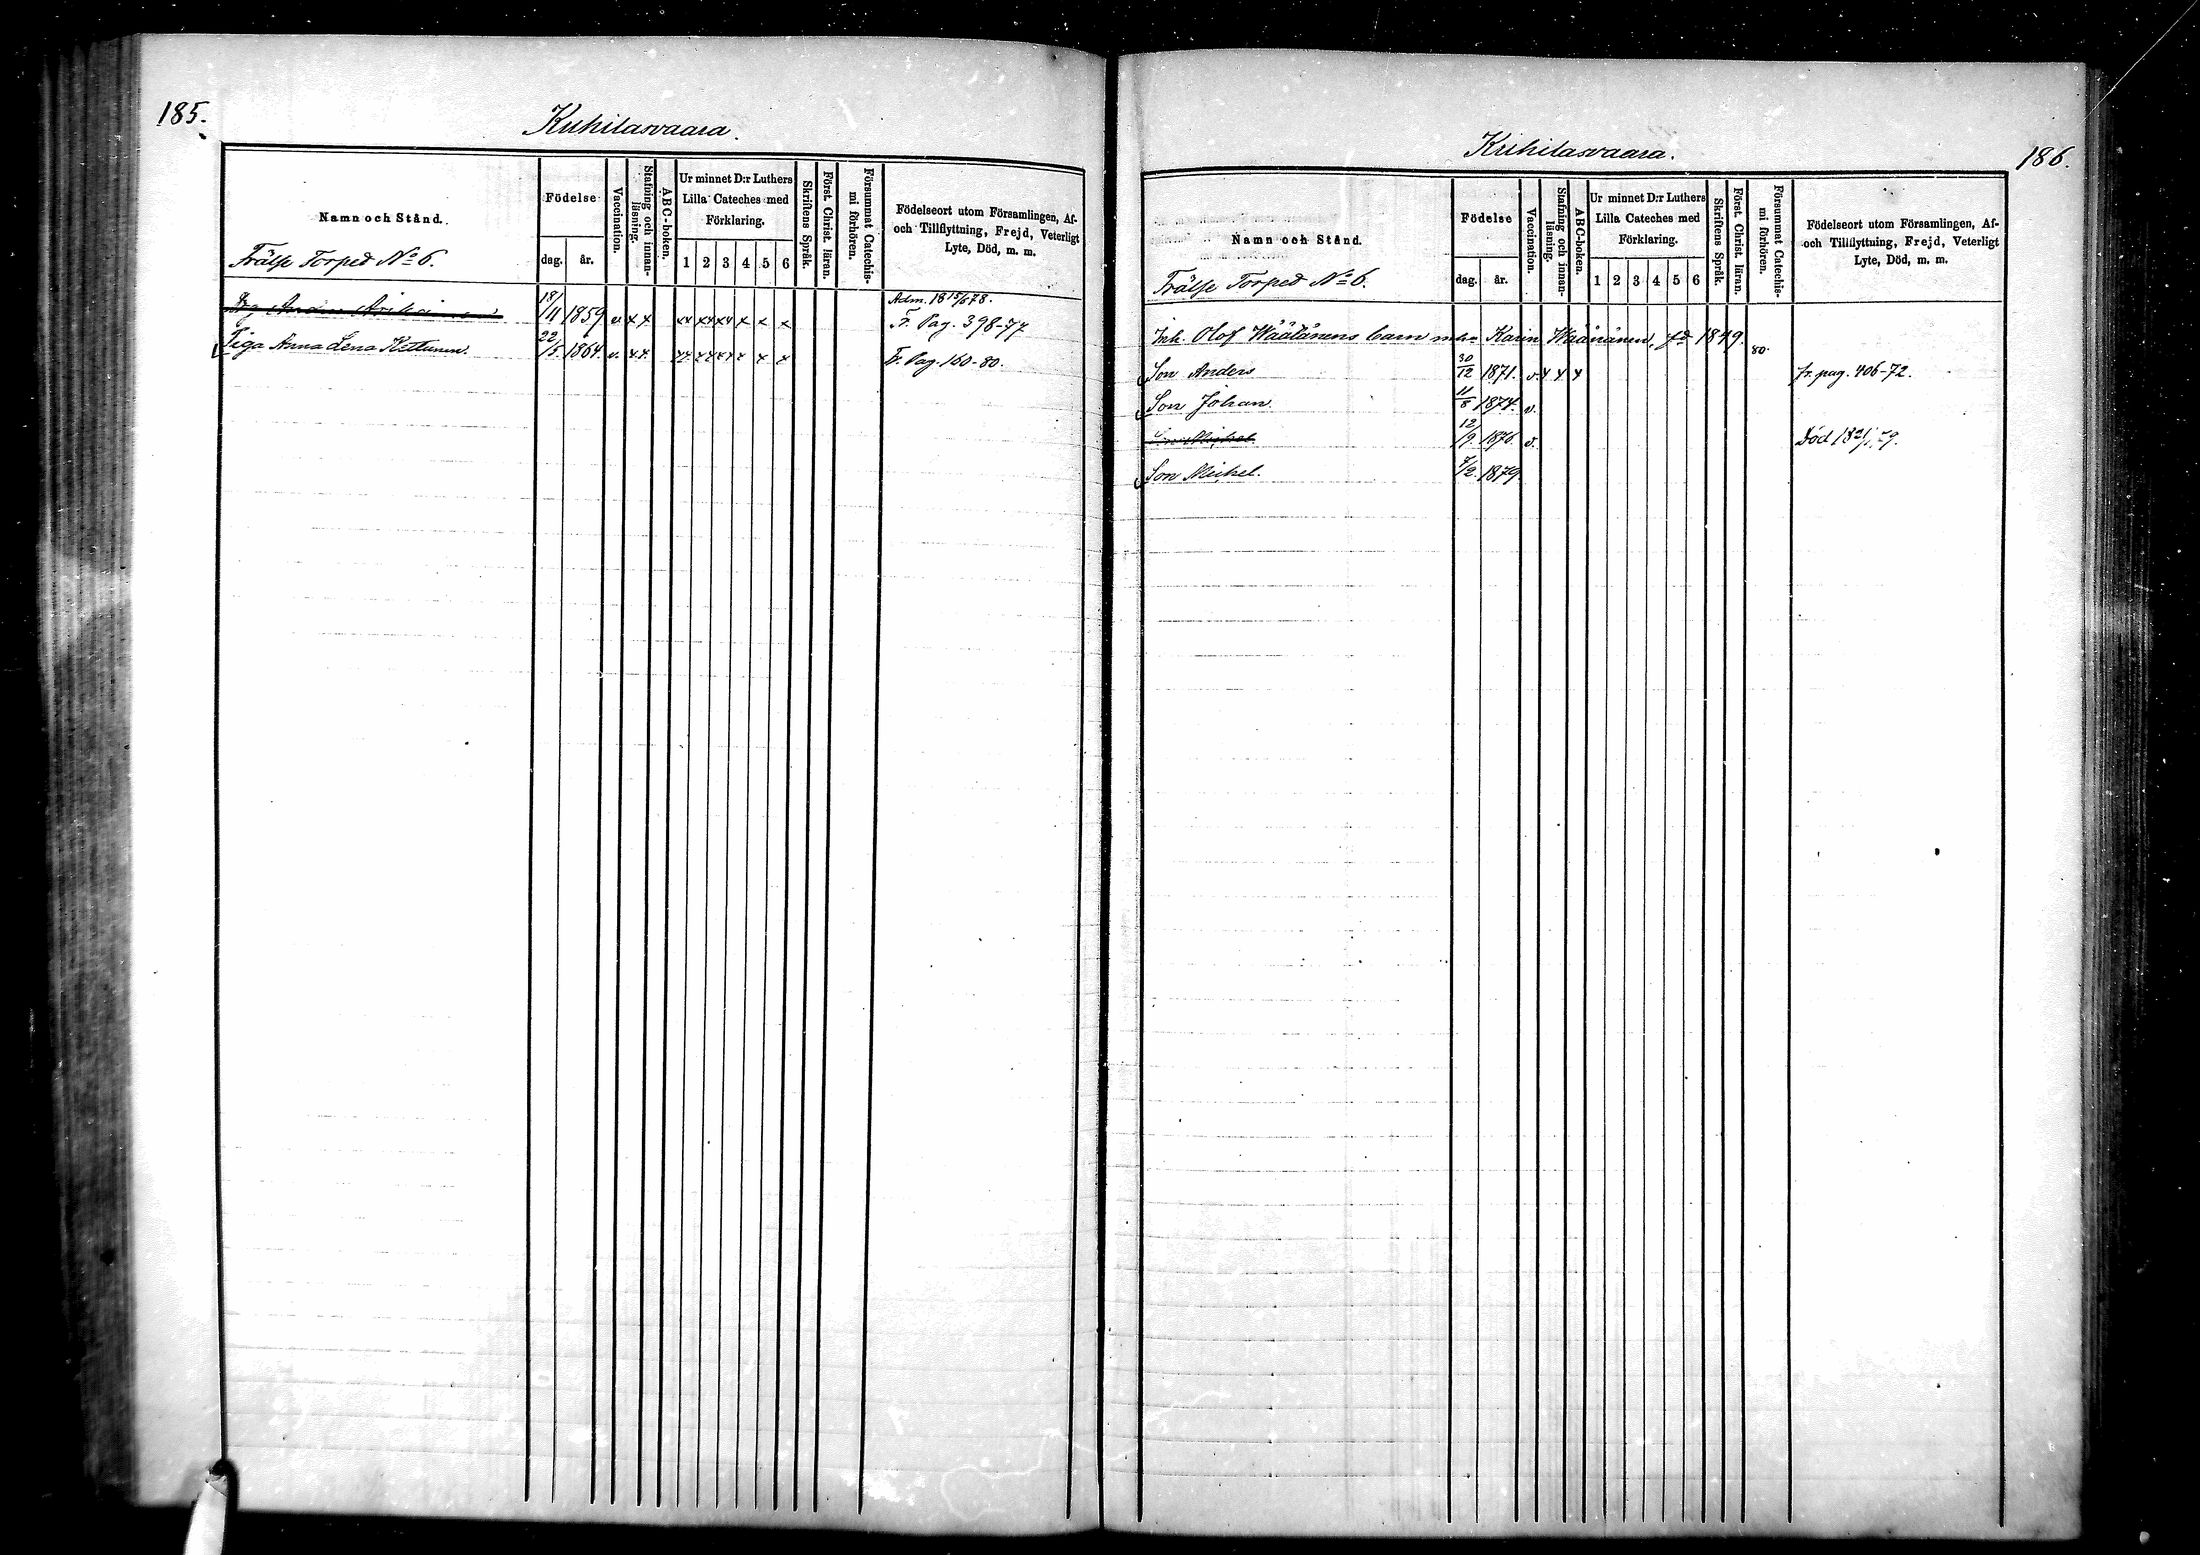 185.
Kuhilasvaara.
Namn och Stånd.
Födelse
dag.
år.
Vaccination.
Stafning och innan-
läsning.
ABC-boken.
Ur minnet D:r Luthers
Lilla Cateches med
Förklaring.
1 2 3 4 5 6
Skriftens Språk.
Först. Christ. läran.
Försummat Catechis-
mi förhören.
Födelseort utom Församlingen, Af-
och Tillflyttning, Frejd, Veterligt
Lyte, Död, m. m.
Frälse Torped No 6.
18/11 1859 v x x xx xx xx x x x Adm. 18 15/6 78.
Fr. Pag. 398-77
Piga Anna Lena Kettunen. 22/5 1864. v. x x. Fr. Pag. 160-80.
Kuhilasvaara.
186.
Namn och Stånd.
Födelse
dag.
år.
Vaccination.
Stafning och innan-
läsning.
ABC-boken.
Ur minnet D:r Luthers
Lilla Cateches med
Förklaring.
1 2 3 4 5 6
Skriftens Språk.
Först. Christ. läran.
Försummat Catechis-
mi förhören.
Födelseort utom Församlingen, Af-
och Tillflyttning, Frejd, Veterligt
Lyte, Död, m. m.
Frälse Torped No 6.
Inh. Olof Wäätänens barn m. h. Karin Wäänänen, fd 1849.
80.
Son Anders 30/12 1871. v. x x x fr. pag. 406-72.
Son Johan. 11/8 1874. v.
Son Michel 12/9 1876 v. Död
Son Michel. 7/2 1879.